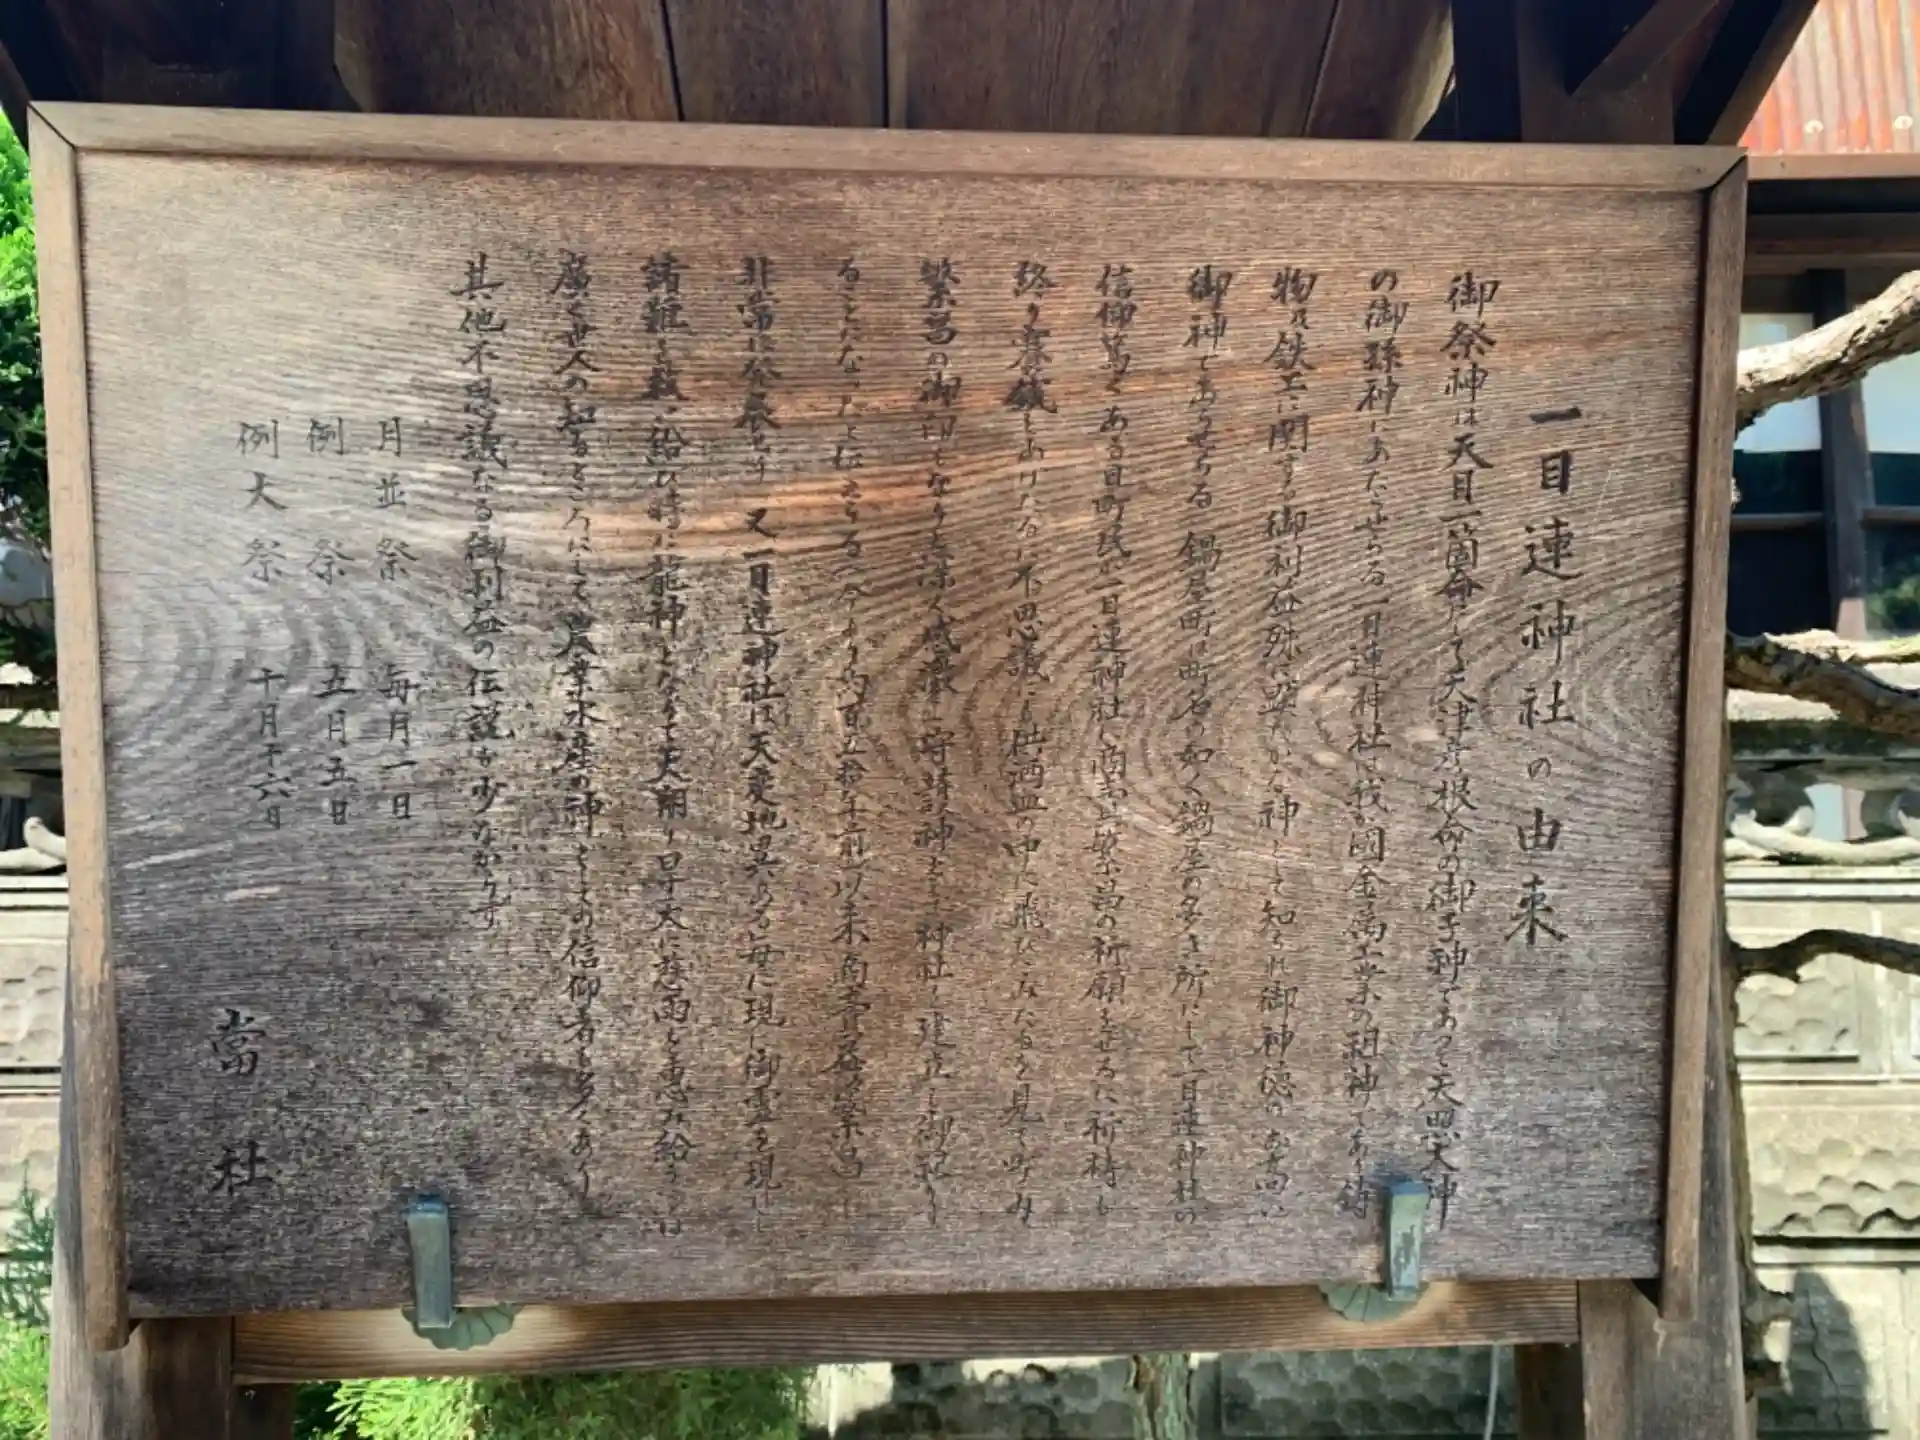 一目連神社の由来
御祭神は天目一箇命にして天津彦根命の御子神であって天照大神
の御孫神にあたらせらる一目連神社は我が國金属工業の祖神であり鋳
物及鉄工に関する御利益殊に顕たかな神として知られ御神徳のお高い
御神であらせらる 鍋屋町は町名の如く鍋屋の多き所にして一目連神社の
信仰篤くある日町民が一目連神社に商売繁昌の祈願をせるに祈祷も
終り賽銭をあげたるに不思議にも仕洒皿の中に飛びこみたるを見て町民
繁昌の御印しなりと深く感激し守護神として神社を建立し御祀り
ることになったと伝えらる 今より約百五拾年前以来商売益々繁昌し
非常に発展をす 又一目連神社は天変地異のある毎に現し御霊を現し
諸難を救い給ひ時に龍神となりて天翔り旱天に慈雨を恵み給うことは
廣く世人の知るところにして農業水産の神としての信仰者も多くあり
其他不思議なる御利益の伝説も少なからず
月並祭 毎月一日
例祭 五月五日
例大祭 十月十六日
當社